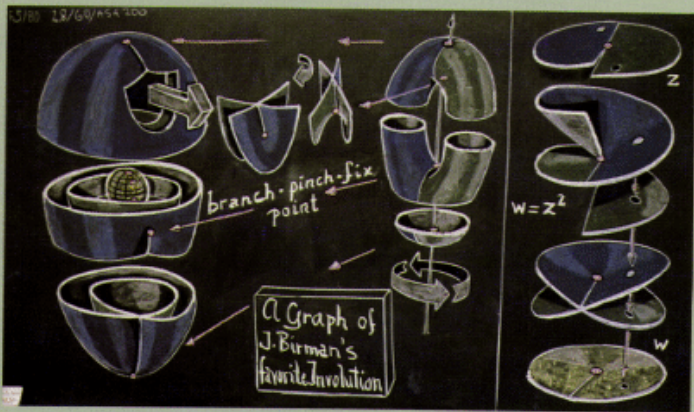 branch-pinch-fix
point
A Graph of
J. Birman's
favorite Involution
Z
W=Z²
W